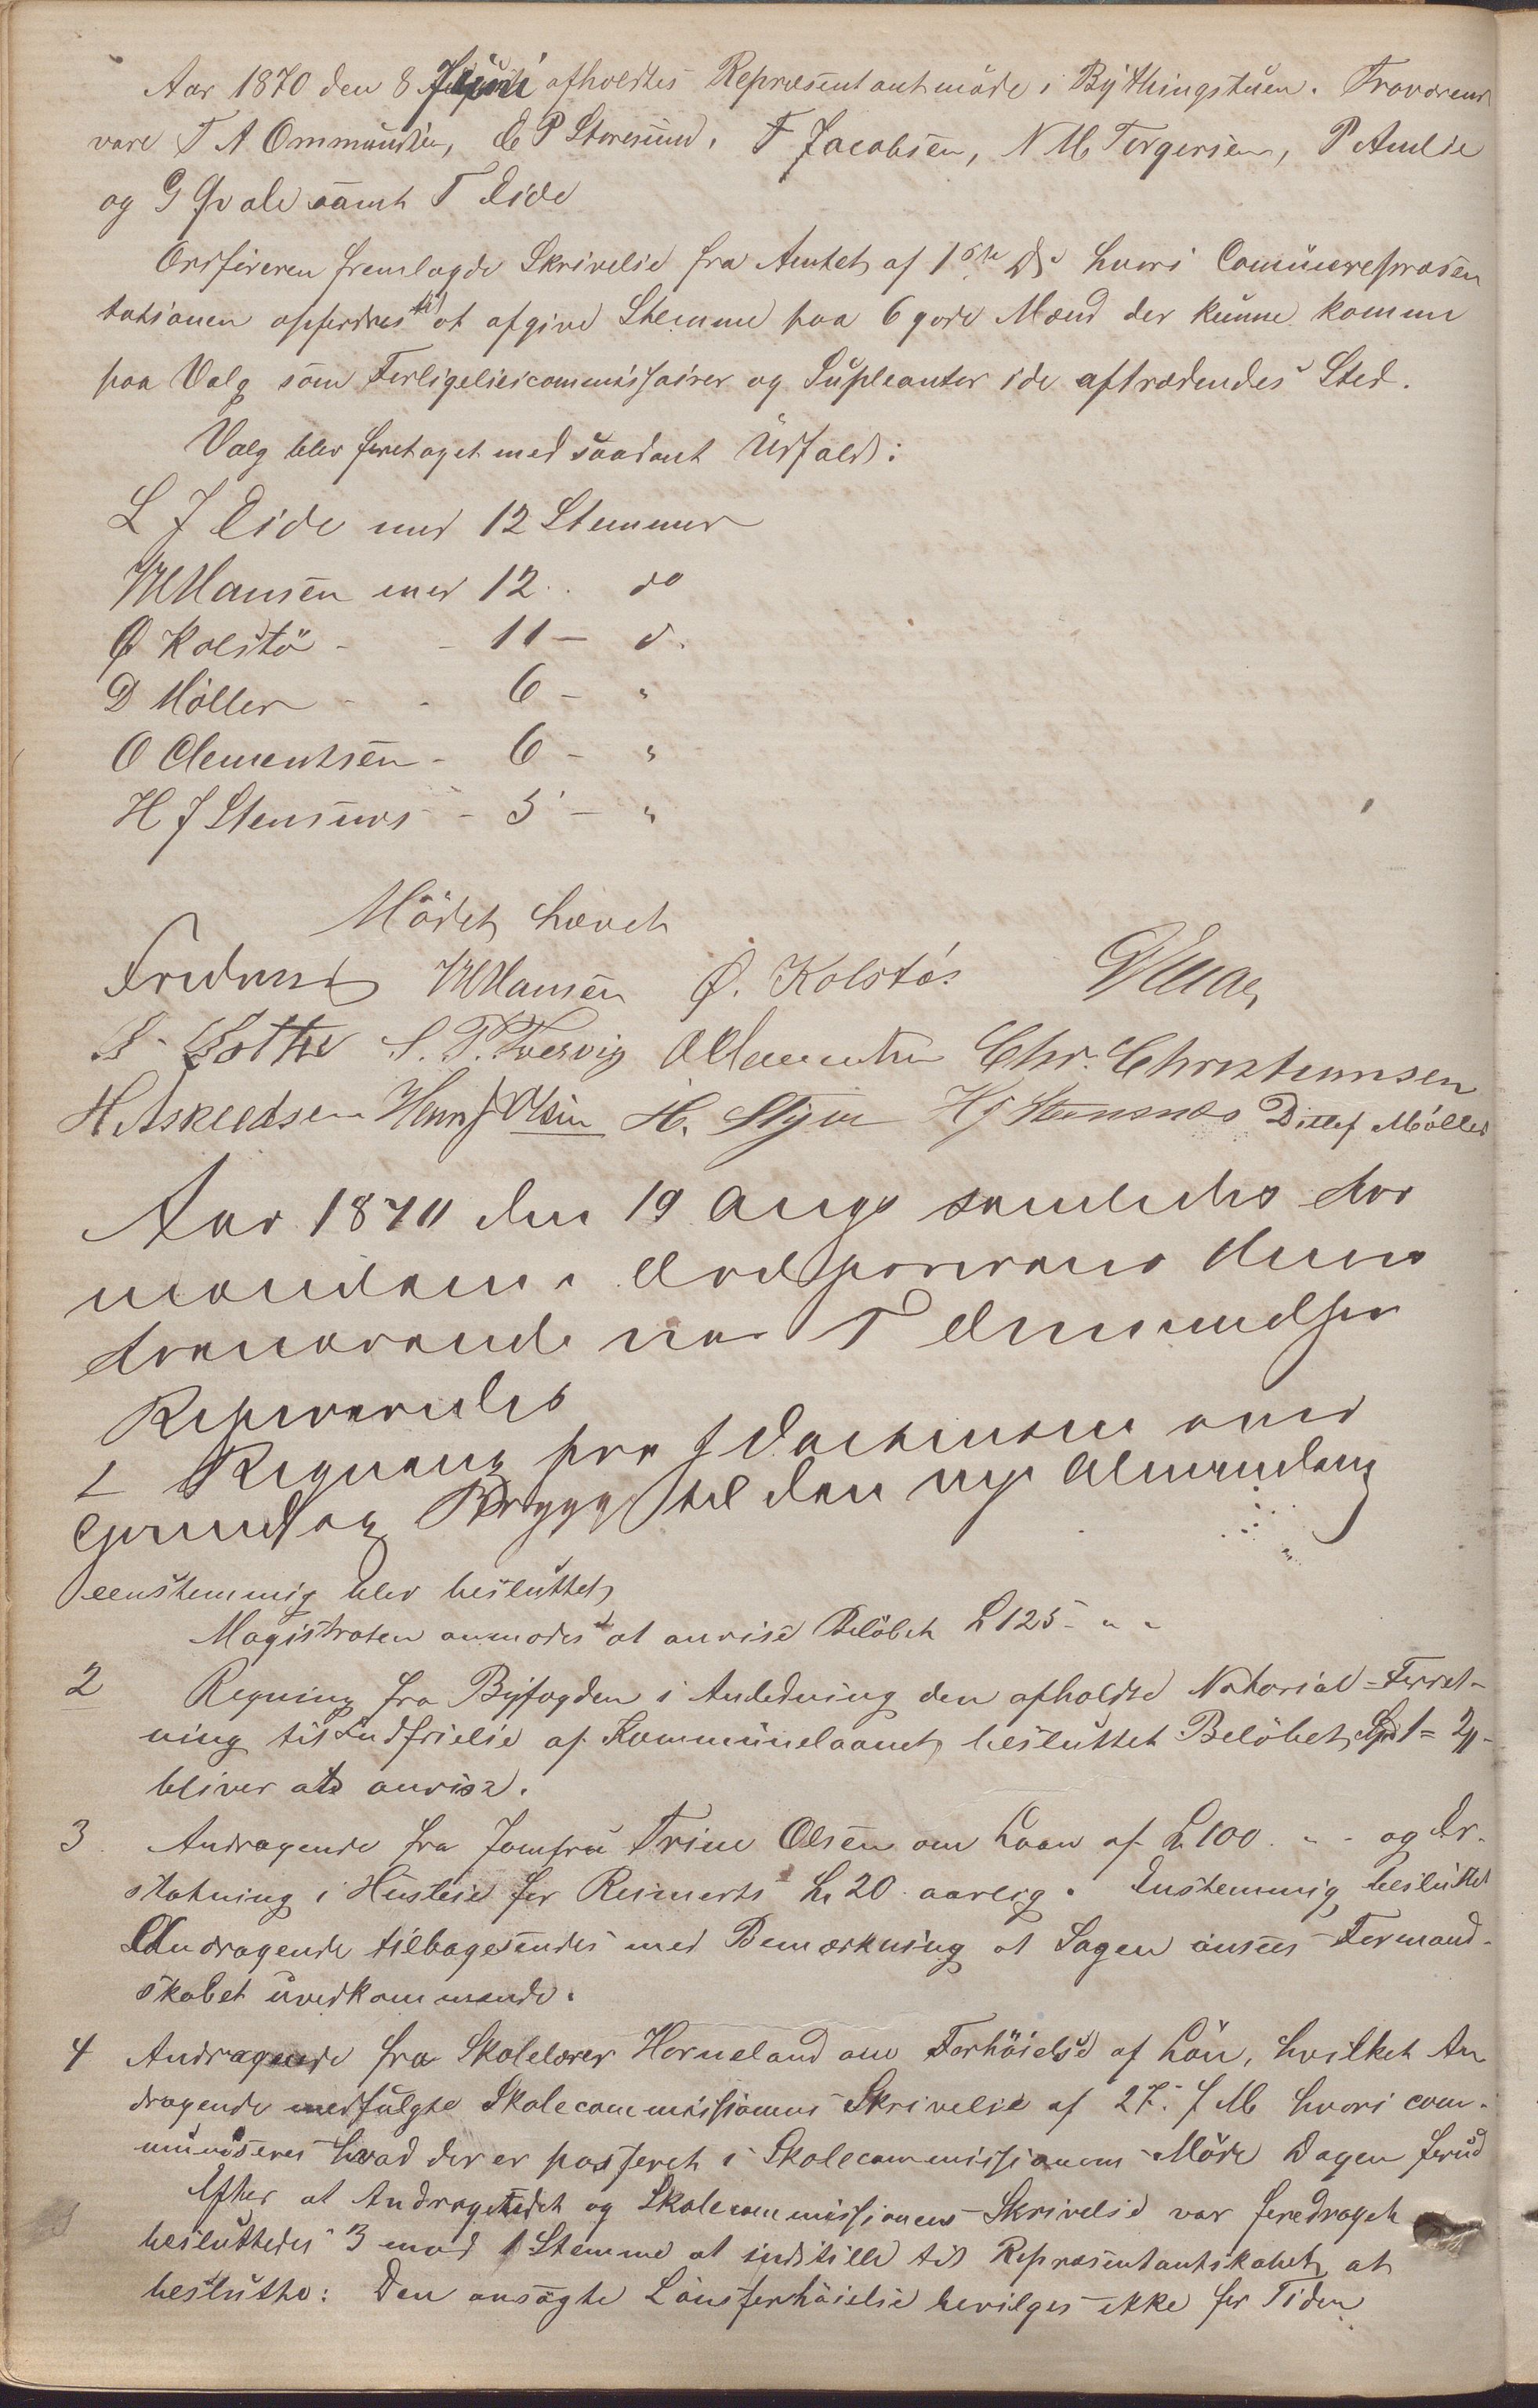 Aar 1870 den 8 Juni afholdtes Repræsentantmöde i Bythingstuen. Fraværend
vare T A Ommundsen, E P Storesund, F Jacobsen, N M Torgersen, P Amlie
og G Qvale samt T Eide
Ordføreren fremlagde Skrivelse fra Amtet af 1ste Ds hvori Communerepræsen
tationen opfordres til at afgive Stemme paa 6 gode Mænd der kunne komme
paa Valg som Forligelsescommissairer og Supleanter i de aftrædendes Sted.
Valg blev foretaget med saadant Udfald:
L J Eide med 12 Stemmer
W Hansen med 12 do
Ø Kolstö - - 11 - d.
D Möller - - 6 - "
O Clementsen - 6 - "
H J Stensnæs - 5 - "
Mödet hævet
W Hansen Ø. Kolstö.
B. Gothe S. P. Tvesvig O Clementsen Chr. Christiansen
H Askeldsen Hans J Olsen H. Styve H J Stensnæs Ditlef Möller
Aar 1870 den 19 Aug samledes for
mændene i Ordförerens Huus
fraværende var T Omundsen
Refereredes
1 Regning fra J Joakimsen over
Grund og Brygge til den nye Almending
eenstemmig blev besluttet,
Magistraten anmodes at anvise Belöbet L 125 - " "
2 Regning fra Byfogden i Anledning den afholdte Notorial-Forret-
ning til Indfrielse af Kommunelaanet, besluttet Belöbet Spd 1 = 24 -
bliver at anvise.
3 Andragende fra Jomfru Trine Olsen om Laan af L 100. " - og Er-
statning i Husleie for Reimerts L 20 aarlig. Enstemmig besluttet
Andragende tilbagesendes med Bemærkning at Sagen ansees Formand-
skabet uvedkommende.
4 Andragende fra Skolelærer Horneland om Forhöielse af Lön, hvilket An
dragende medfulgte Skolecommissionens Skrivelse af 27. f M hvori com-
muniseres hvad der er passeret i Skolecommissionens Möde Dagen forud
Efter at Andragendet og Skolecommissionens Skrivelse var foredraget
besluttedes 3 mod 1 Stemme at indstille til Repræsentantskabet, at
beslutte: Den ansögte Lönsforhöielse bevilges ikke for Tiden